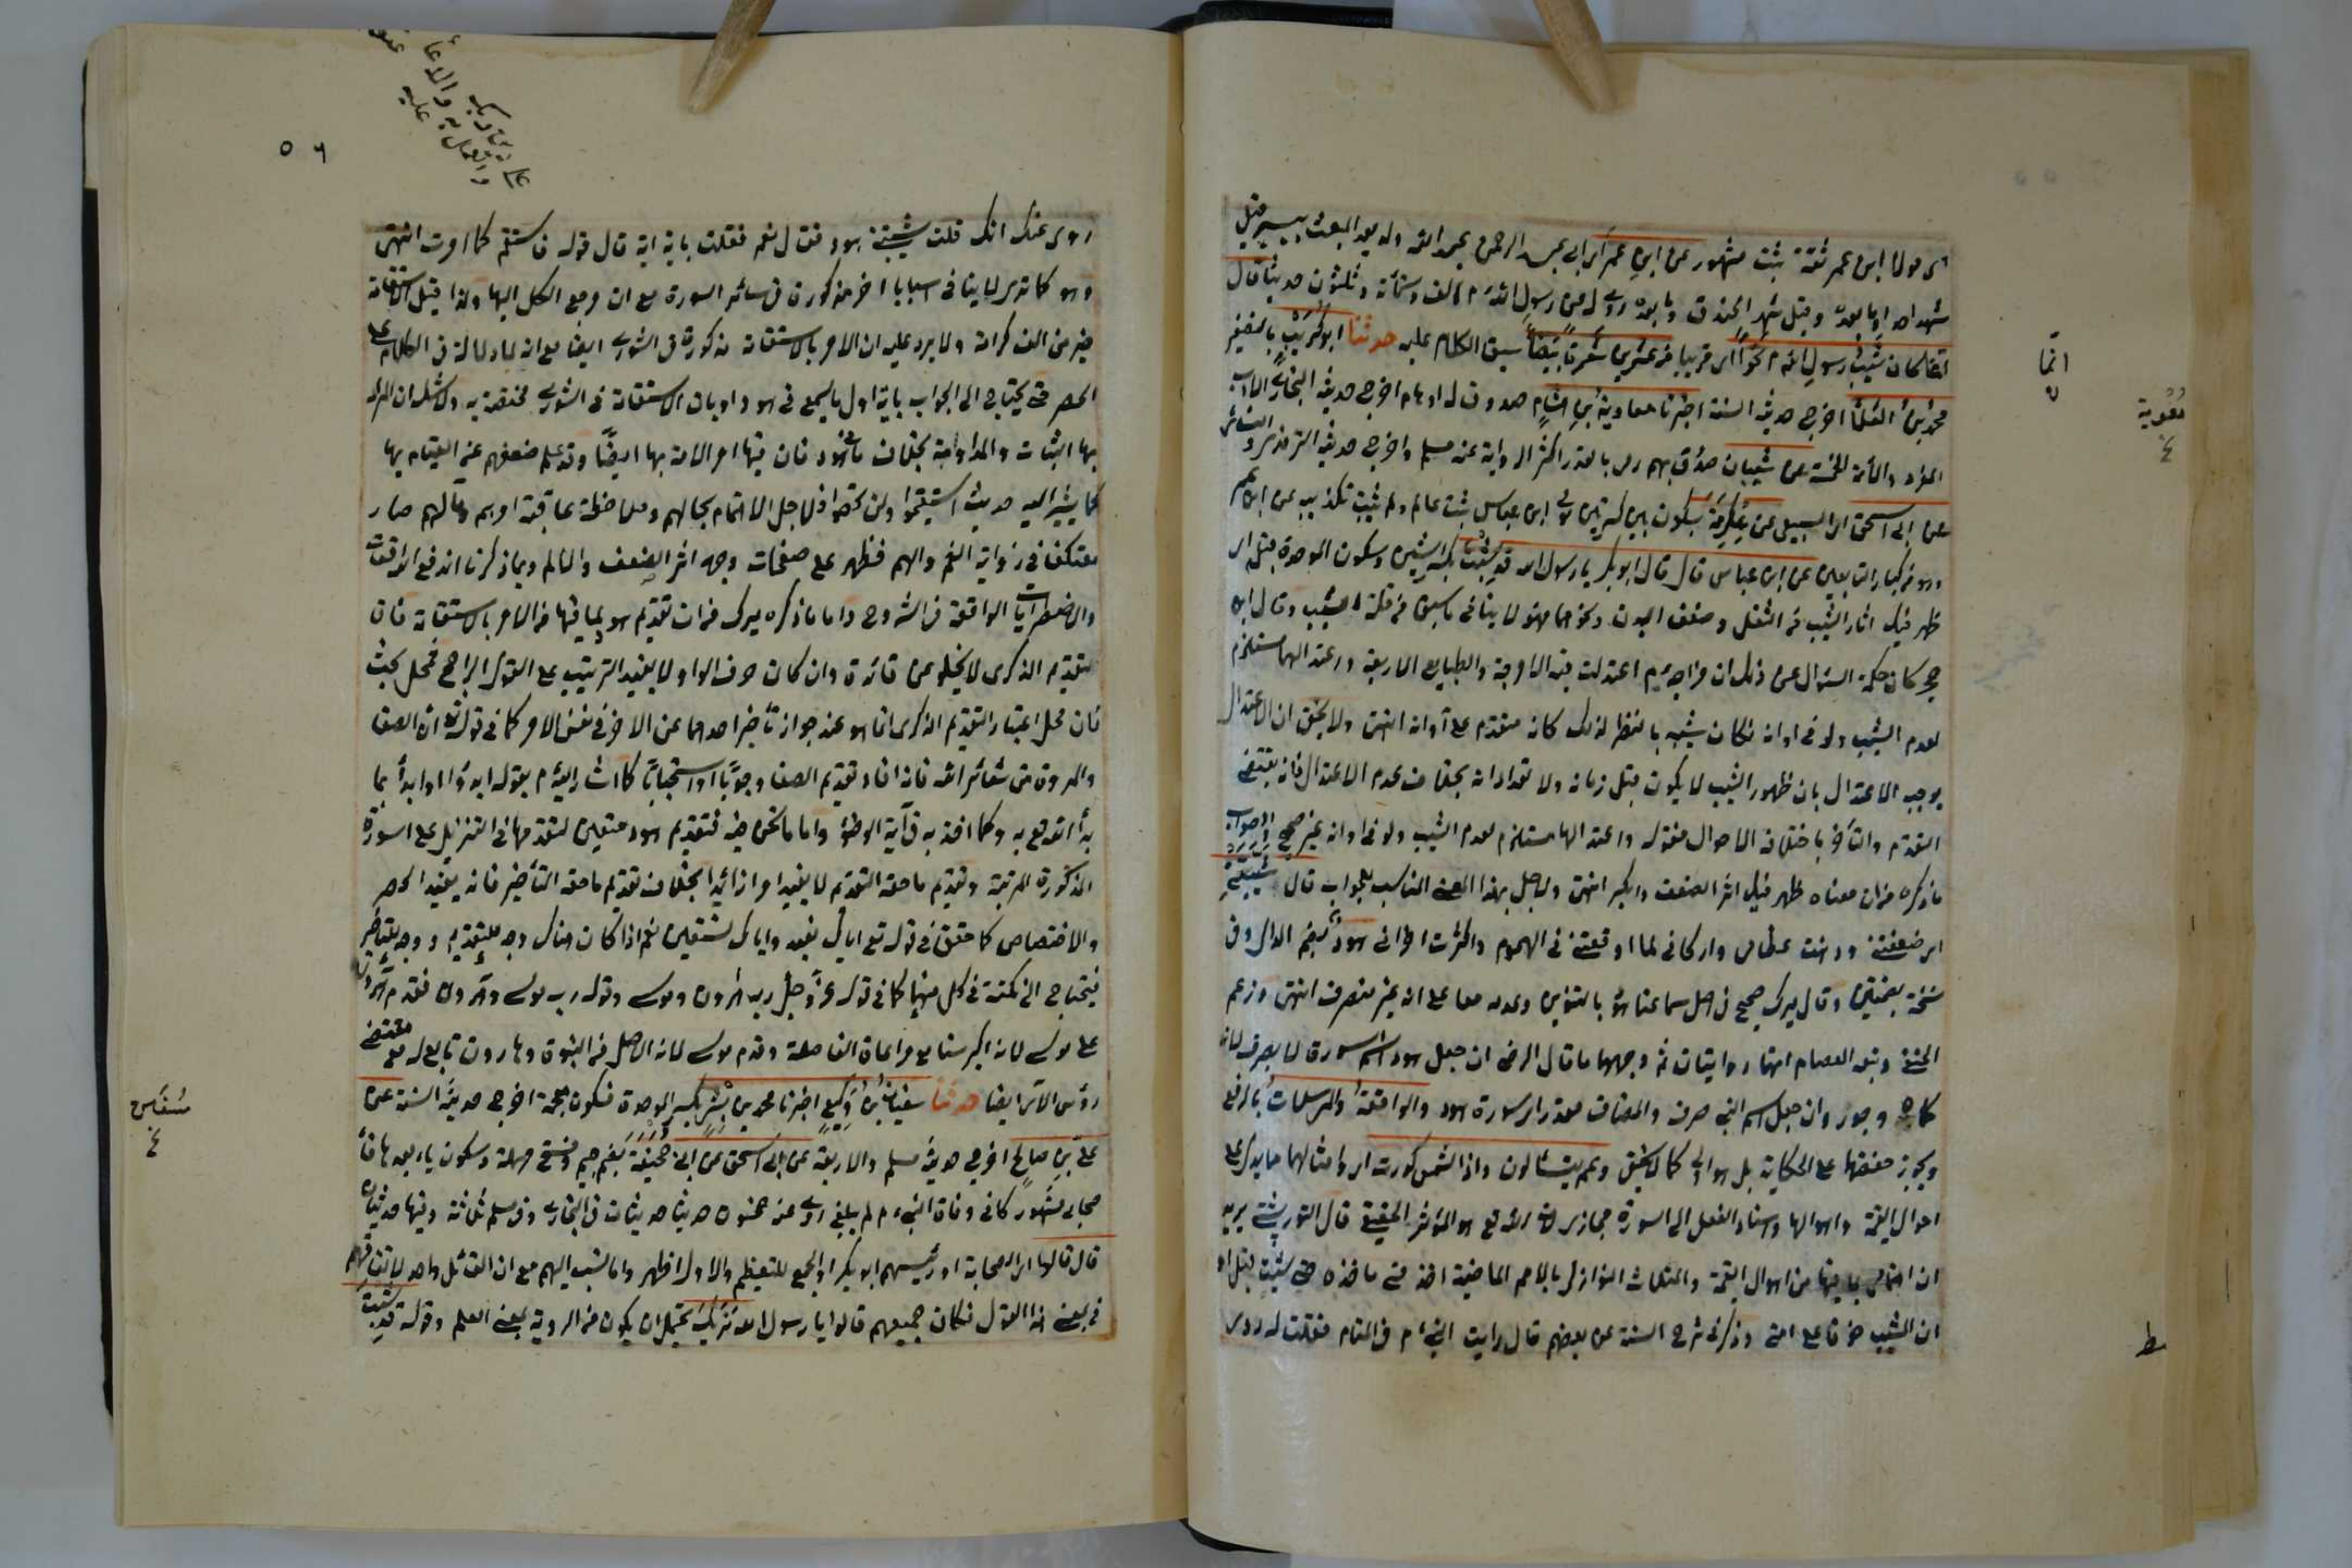 اى مولى ابن عمر ثقة ثبت مشهور عن ابن عمر اى ابى عبد الرحمن عبد الله ولد بعد المبعث بيسير قيل
شهد احدا وما بعده وقيل شهد الخندق وما بعده روى له عن رسول الله م الف وستمائة وثلثون حديثا قال
انما كان شيب رسول الله م نحوا اى قريبا من عشرين شعرة بيضاء سبق الكلام عليه حدثنا ابو كريب بالتصغير
محمد بن العلاء اخرج حديثه الستة اخبرنا معاوية بن هشام صدوق له اوهام اخرج حديثه البخارى فى الادب
المفرد والائمة الخمسة عن شيبان صدوق يهم رمى بالقدر اكثر الرواية عنه مسلم واخرج حديثه الترمذى والنسائى
عن ابى اسحق اى السبيعى عن عكرمة بسكون بين كسرتين مولى ابن عباس ثبت عالم ولم يثبت تكذيبه عن ابن عمر
وهو من كبار التابعين عن ابن عباس قال قال ابو بكر يا رسول الله قد شبت بكسر الشين وسكون الموحدة قبل اى
ظهر فيك اثار الشيب من الثقل وضعف البدن ونحوهما فهو لا ينافى ما سبق من قلة الشيب وقال ابن
حجر كان حكمة السؤال عن ذلك ان مزاجه م اعتدلت فيه الامزجة والطبايع الاربعة واعتدالها مستلزم
لعدم الشيب ولو فى اوانه فكان شيبه بالنظر لذلك كانه متقدم على اوانه انتهى ولا يخفى ان الاعتدال
يوجب الاعتدال بان ظهور الشيب لا يكون قبل زمانه ولا تعداد انه بخلاف عدم الاعتدال فانه يقتضى
التقدم والتأخر باختلاف الاحوال فقوله واعتدالها مستلزم لعدم الشيب ولو فى اوانه غير صحيح والصواب
ما ذكره من ان معناه ظهر فيك اثر الضعف والكبر انتهى ولاجل هذا المعنى المناسب للجواب قال شيبتنى
اى ضعفتنى ووهنت عظامى واركانى لما اوقعتنى فى الهموم واكثرت احزانى هود بضم الدال وفى
نسخة بضمتين وقال ميرك صحح فى اصل سماعنا هود بالتنوين وعدمه معا على انه غير منصرف انتهى وزعم
الحنفى وتبعه العصام انهما روايتان ثم وجههما ما قال الرضى ان جعل هود اسم سورة لا يصرف لانها
كماه وجور وان جعل اسم النبى صرف والمضاف مقدر اى سورة هود والواقعة والمرسلات بالرفع
ويجوز خفضها على الحكاية بل هو اولى كما لا يخفى وعم يتسائلون واذا الشمس كورت اى وامثالهما مما يدل على
احوال القيمة واهوالها واسناد الفعل الى السورة مجازى لان الله تع هو المؤثر الحقيقى قال التوربشتى يريد
ان اهتمامى بما فيها من اهوال القيمة والمثلات النوازل بالامم الماضية اخذ منى ماخذه حتى شبت قبل اوا
ان الشيب خوفا على امتى وذكر فى شرح السنة عن بعضهم قال رايت النبى م فى المنام فقلت له روى
انما
معوية
٤
ط
على
٥٦
روى عنك انك قلت شيبتنى هود فقال نعم فقلت باية اية قال قوله فاستقم كما امرت انتهى
وهو كما ترى لا ينافى اسبابا اخر مذكورة فى سائر السورة مع ان مرجع الكل اليها ولذا قيل الاستقامة
خير من الف كرامة ولا يرد عليه ان الامر بالاستقامة مذكورة فى الشورى ايضا مع انه لا دلالة فى الكلام على
الحصر حتى يحتاج الى الجواب بانه اول ما سمع فى هود او بان الاستقامة فى الشورى مختصة به ولا شك ان المراد
بها الثبات والمداومة بخلاف ما فى هود فان فيها امر الامة بها ايضا وقد علم ضعفهم عن القيام بها
كما يشير اليه حديث استقيموا ولن تحصوا فلاجل الاهتمام بحالهم وملاحظة عاقبة امرهم ومآلهم صار
معتكفا فى زواية الغم والهم فظهر على صفحات وجهه اثر الضعف والالم وبما ذكرنا اندفع المناقشات
والاضطرابات الواقعة فى الشروح واما ما ذكره ميرك من ان تقديم هود لما فيها من الامر بالاستقامة فان
التقديم الذكرى لا يخلو عن فائدة وان كان حرف الواو لا يفيد الترتيب على القول الراجح فمحل بحث
فان محل اعتبار التقديم الذكرى انما هو عند جواز تأخير احدهما عن الاخر فى نفس الامر كما فى قوله تع ان الصفا
والمروة من شعائر الله فانه افاد تقديم الصفا وجوبا او استحبابا كما اشار اليه م بقوله ابدؤا او ابدأ بما
بدأ الله تع به وكما اخذ به فى آية الوضوء واما ما نحن فيه فتقديم هود متعين لتقدمها فى التنزيل على السورة
المذكورة المرتبة وتقديم ما حقه التقديم لا يفيد امرا زائدا بخلاف تقديم ما حقه التأخير فانه يفيد الحصر
والاختصاص كما حقق فى قوله تع اياك نعبد واياك نستعين نعم اذا كان هناك وجه للتقديم ووجه للتأخير
فيحتاج الى نكتة فى كل منهما كما فى قوله عز وجل رب هرون وموسى وقوله رب موسى وهرون فقدم هرون
على موسى لانه اكبر سنا مع مراعاة الفاصلة وقدم موسى لانه الاصل فى النبوة وهارون تابع له مع مقتضى
رؤس الآى ايضا حدثنا سفيان بن وكيع اخبرنا محمد بن بشر بكسر الموحدة فسكون معجمة اخرج حديثه الستة عن
على بن صالح اخرج حديثه مسلم والاربعة عن ابى اسحق عن ابى جحيفة بضم جيم وفتح مهملة وسكون ياء بعدها فاء
صحابى مشهور كان فى وفاة النبى م لم يبلغ روى عنه خمسون حديثا حديثان فى البخارى وفى مسلم ثلاثة وفيهما حديثان
قال قالوا اى الصحابة او رئيسهم ابو بكر والجمع للتعظيم والاول اظهر وانما نسب اليهم مع ان القائل واحد لاتفاقهم
فى معنى هذا القول فكان جميعهم قالوا يا رسول الله نراك يحتمل ان يكون من الروية بمعنى العلم وقوله قد شبت
سفين
٤